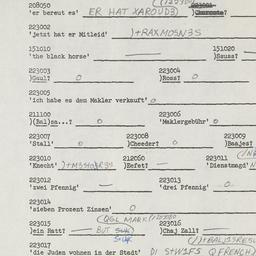 208050
'er bereut es' ER HAT XAROUDƏ)
223002
'jetzt hat er Mitleid' )+RAXMOSNƏS
151010 151020
'the black horse' )Susss?
223003 223004
)Gull? O )Ross? O
223005
'ich habe es dem Makler verkauft' O
211100 223006
()Balsn...? O 'Maklergebühr' O
223007 223008 223009
'Stall' O )Cheeder? O )Baajes?
223010 212060 223011
'Knecht' )Eefet? — 'Dienstmagd'
223012 223013
'zwei Pfennig' — 'drei Pfennig' O
223014
'sieben Prozent Zinsen' O
223015 (QGL MARK) 223016
)ein Ratt? — BUT )Chaj Zall? —
223017
'die Juden wohnen in der Stadt' DI